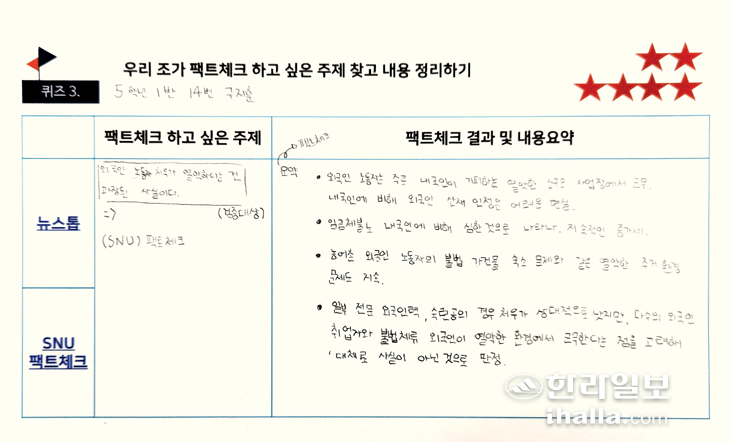 우리 조가 팩트체크 하고 싶은 주제 찾고 내용 정리하기
퀴즈 3.
5학년 1반 14번 국지훈
팩트체크 하고 싶은 주제
팩트체크 결과 및 내용요약
뉴스톱
외국인 노동자 처우가 열악하다는 건
과장된 사실이다.
=> (검증대상)
(SNU) 팩트체크
SNU
팩트체크
팩트체크
요약
• 외국인 노동자는 주로 내국인이 기피하는 열악한 소규모 사업장에서 근무.
내국인에 비해 외국인 산재 인정은 어려운 편임.
• 임금체불도 내국인에 비해 심한 것으로 나타나. 지속적인 증가세.
• 농어촌 외국인 노동자의 불법 가건물 숙소 문제와 같은 열악한 주거 환경
문제도 지속.
• 일부 전문 외국인력, 숙련공의 경우 처우가 상대적으로 낫지만, 다수의 외국인
취업자와 불법체류 외국인이 열악한 환경에서 근무한다는 점을 고려해
'대체로 사실이 아닌 것으로 판정.
한라일보
ihalla.com